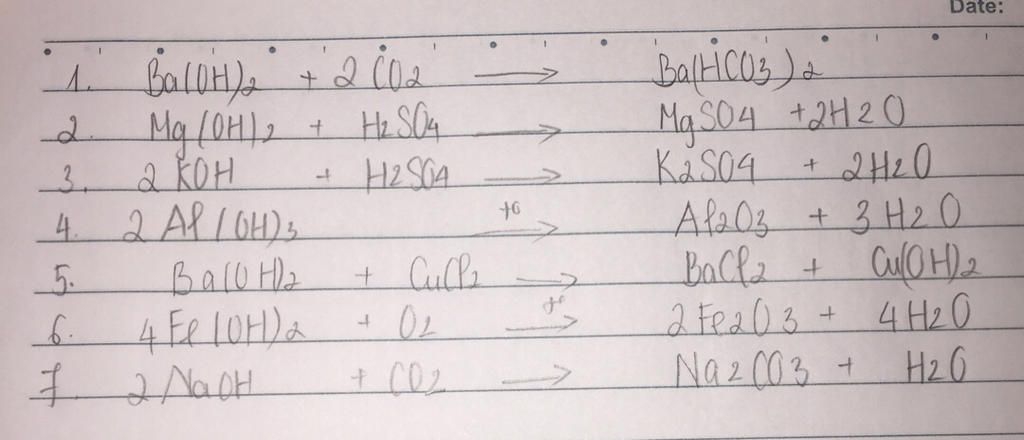 Date:
1. Ba(OH)2 + 2 CO2 → Ba(HCO3)2
2. Mg(OH)2 + H2SO4 → MgSO4 + 2H2O
3. 2 KOH + H2SO4 → K2SO4 + 2H2O
4. 2 Al(OH)3 t° → Al2O3 + 3 H2O
5. Ba(OH)2 + CuCl2 → BaCl2 + Cu(OH)2
6. 4 Fe(OH)2 + O2 t° → 2 Fe2O3 + 4 H2O
7. 2 NaOH + CO2 → Na2CO3 + H2O